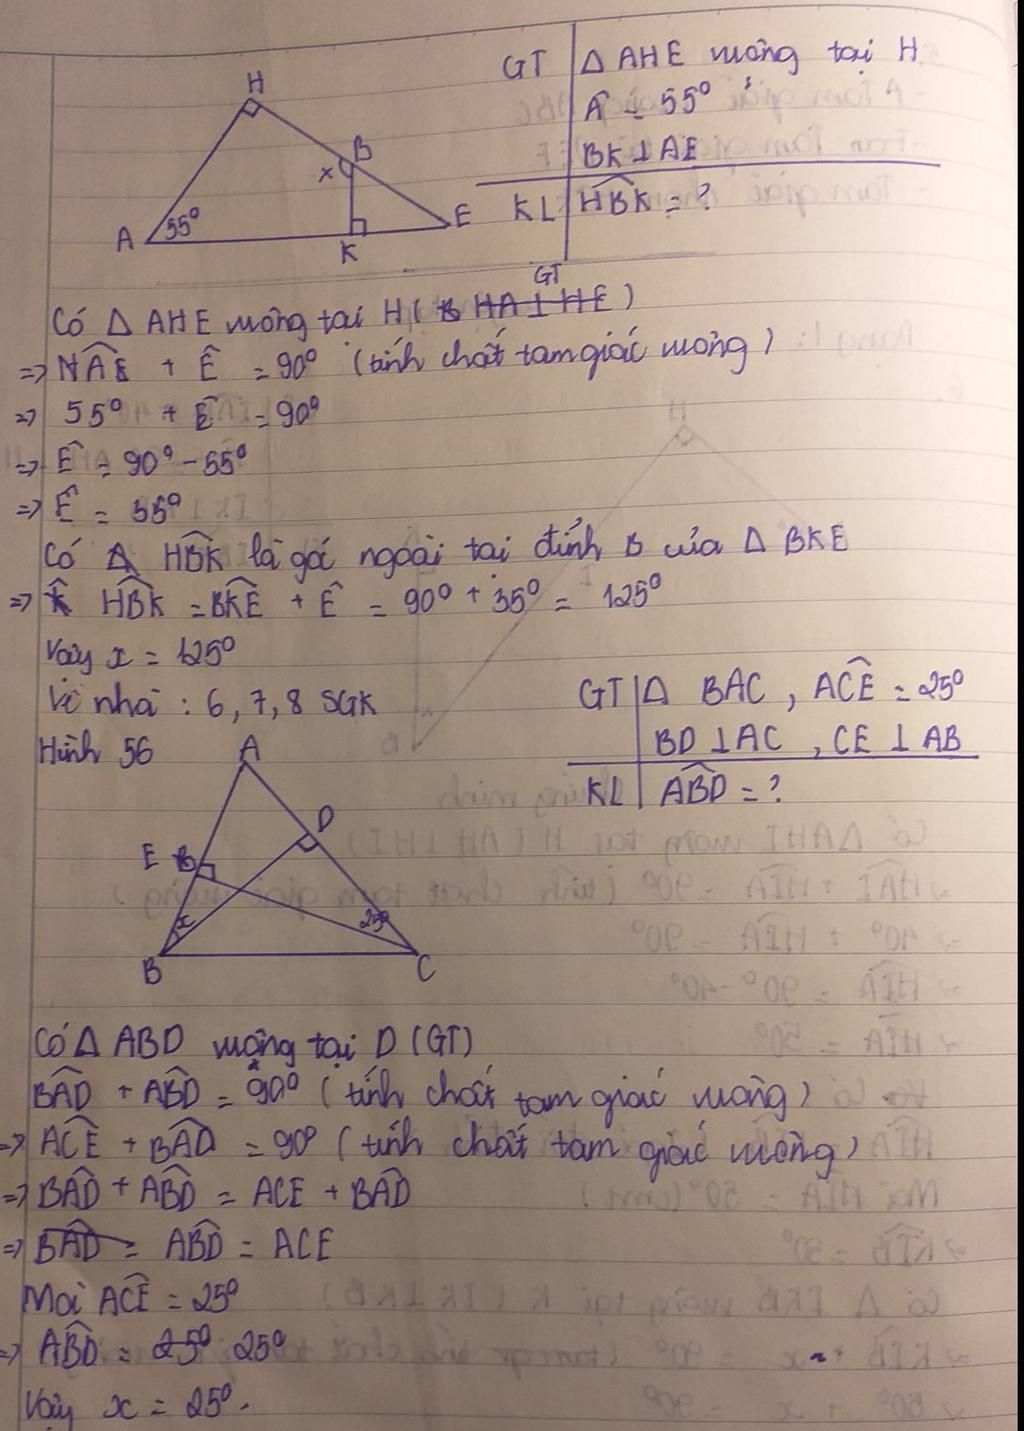 GT △ AHE vuông tại H
Â = 55°
BK ⊥ AE
KL HBK̂ = ?
H
B
x
A 55°
K
E
Có △ AHE vuông tại H ( HA ⊥ HE ) GT
=> HAÊ + Ê = 90° (tính chất tam giác vuông)
=> 55° + Ê = 90°
=> Ê = 90° - 55°
=> Ê = 35°
Có HBK̂ là góc ngoài tại đỉnh B của △ BKE
=> HBK̂ = BKÊ + Ê = 90° + 35° = 125°
Vậy x = 125°
Về nhà : 6, 7, 8 SGK
Hình 56
GT △ BAC , ACÊ = 25°
BD ⊥ AC , CE ⊥ AB
KL ABD̂ = ?
A
D
E
x
25°
B
C
Có △ ABD vuông tại D (GT)
BAD̂ + ABD̂ = 90° (tính chất tam giác vuông)
=> ACÊ + BAD̂ = 90° (tính chất tam giác vuông)
=> BAD̂ + ABD̂ = ACE + BAD̂
=> BAD̂ = ABD̂ = ACE
Mà ACÊ = 25°
=> ABD̂ = 25° 25°
Vậy x = 25°.